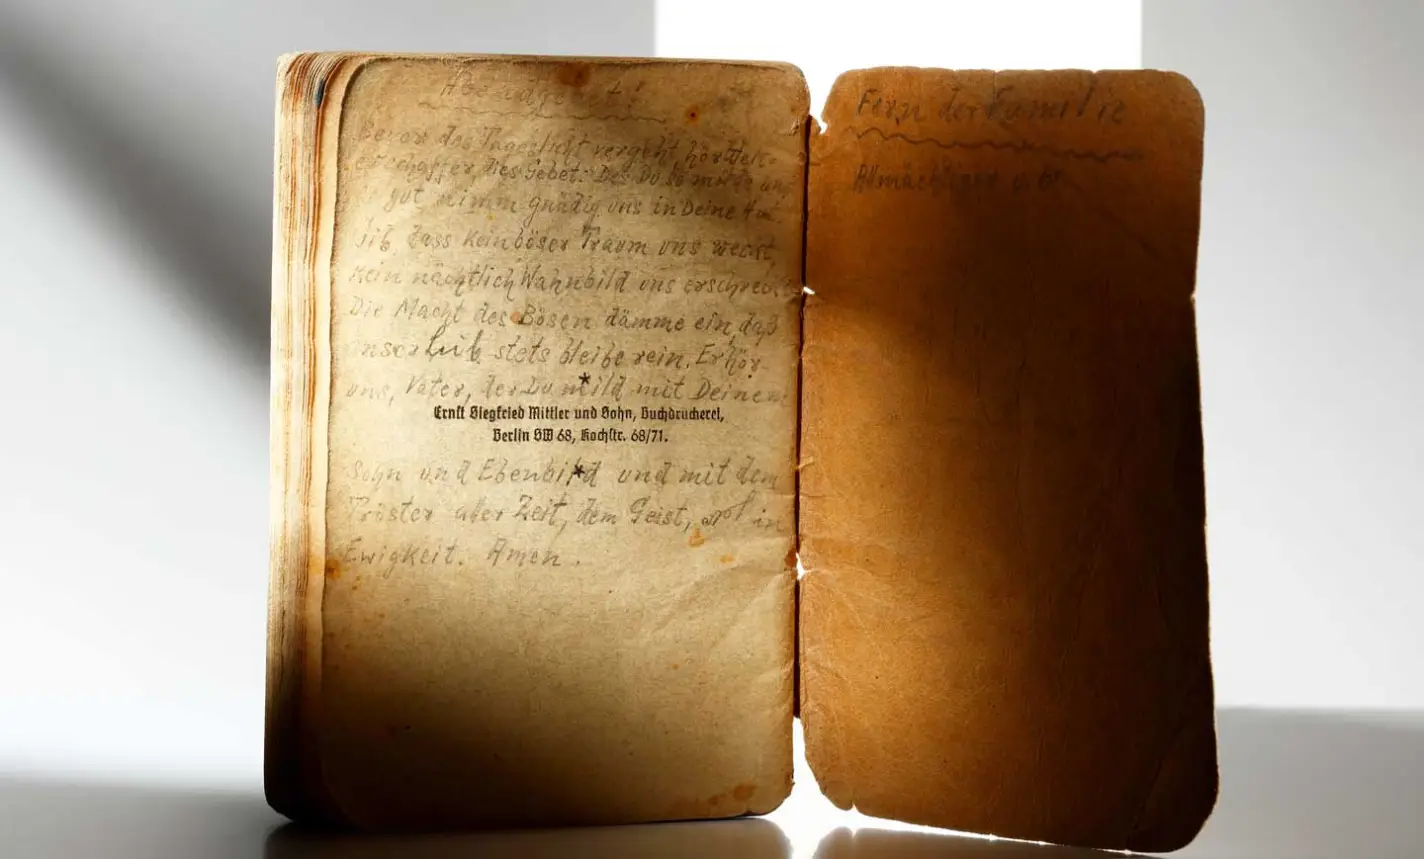 Abendgebet!
Bevor des Tageslicht vergeht hör Welt-
erschaffer, dies Gebet: Der Du so milde und
so gut nimm gnädig uns in Deine Hut.
Gib, dass kein böser Traum uns weckt,
kein nächtlich Wahnbild uns erschreckt.
Die Macht des Bösen dämme ein, daß
unser Leib stets bleibe rein. Erhör
uns, Vater, der Du mild mit Deinem
*
Ernst Siegfried Mittler und Sohn, Buchdruckerei,
Berlin SW 68, Kochstr. 68/71.
*
Sohn und Ebenbild und mit dem
Tröster aller Zeit, dem Geist, in
Ewigkeit. Amen.
Fern der Familie
Allmächtiger